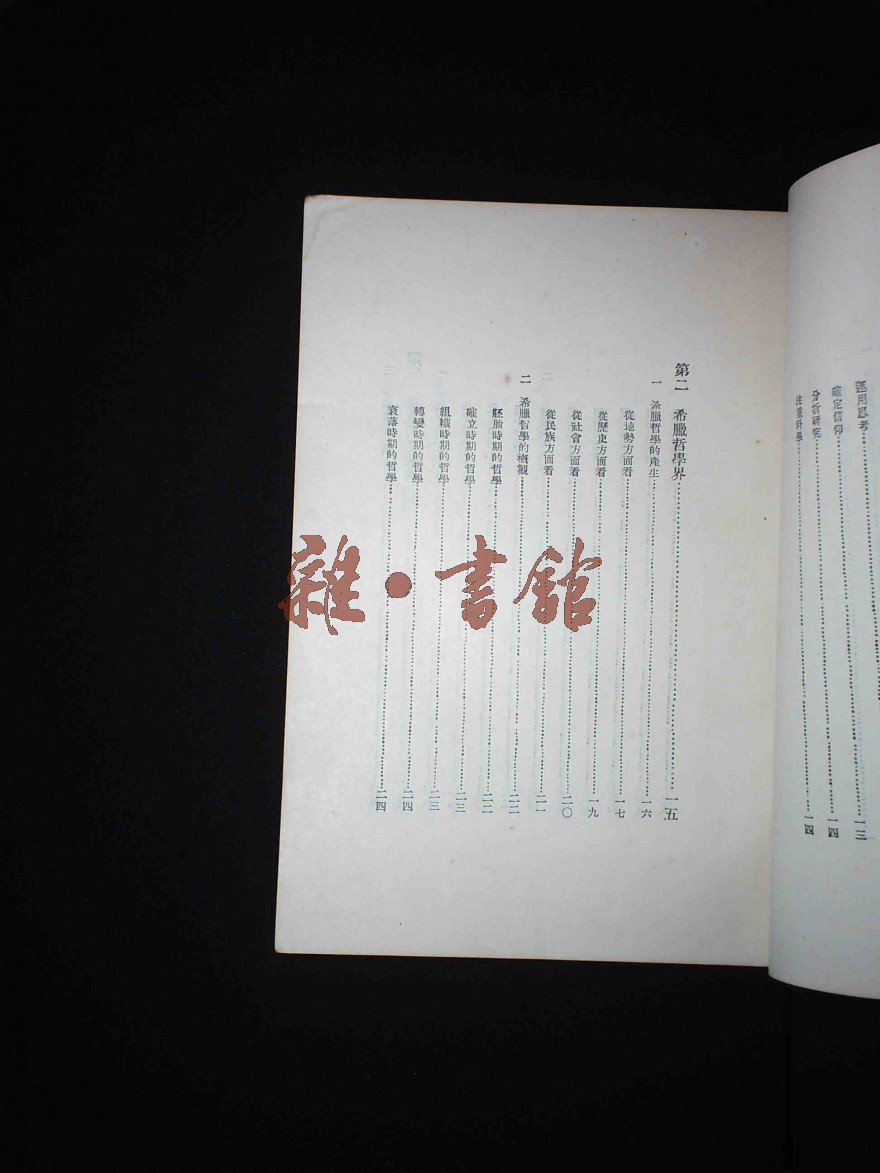 運用思考……一三
確定信仰……一四
分析研究
注重科學……一四
第二 希臘哲學界……一五
一 希臘哲學的產生……一六
從地勢方面看……一七
從歷史方面看……一九
從社會方面看……二〇
從民族方面看……二一
二 希臘哲學的概觀……二二
胚胎時期的哲學……二二
確立時期的哲學……二三
組織時期的哲學……二三
轉變時期的哲學……二四
衰落時期的哲學……二四
雜·書館